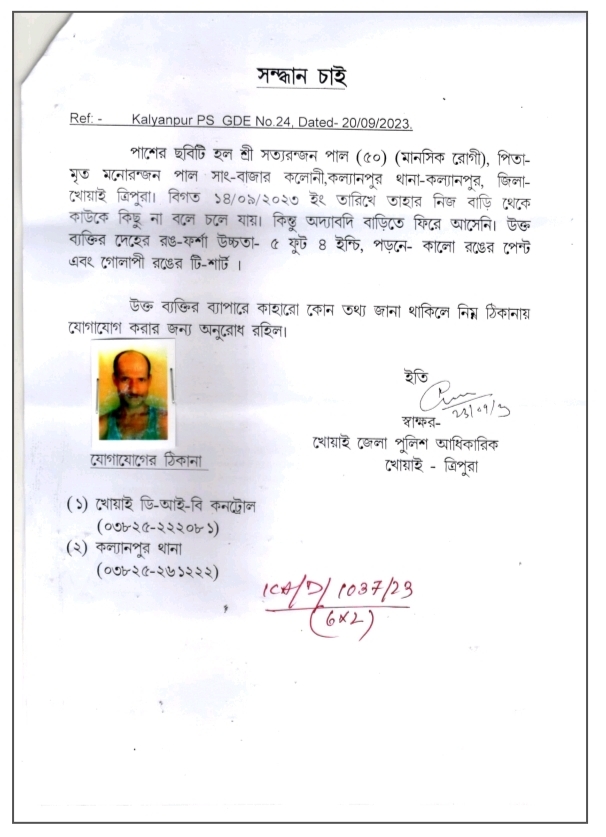 সন্ধান চাই
Ref: - Kalyanpur PS GDE No.24, Dated- 20/09/2023.
পাশের ছবিটি হল শ্রী সত্যরন্জন পাল (৫০) (মানসিক রোগী), পিতা-
মৃত মনোরন্জন পাল সাং-বাজার কলোনী,কল্যানপুর থানা-কল্যানপুর, জিলা-
খোয়াই ত্রিপুরা। বিগত ১৪/০৯/২০২৩ ইং তারিখে তাহার নিজ বাড়ি থেকে
কাউকে কিছু না বলে চলে যায়। কিন্তু অদ্যাবদি বাড়িতে ফিরে আসেনি। উক্ত
ব্যক্তির দেহের রঙ-ফর্শা উচ্চতা- ৫ ফুট ৪ ইন্চি, পড়নে- কালো রঙের পেন্ট
এবং গোলাপী রঙের টি-শার্ট ।
উক্ত ব্যক্তির ব্যাপারে কাহারো কোন তথ্য জানা থাকিলে নিম্ন ঠিকানায়
যোগাযোগ করার জন্য অনুরোধ রহিল।
ইতি
স্বাক্ষর-
খোয়াই জেলা পুলিশ আধিকারিক
খোয়াই - ত্রিপুরা
যোগাযোগের ঠিকানা
(১) খোয়াই ডি-আই-বি কনট্রোল
(০৩৮২৫-২২২০৮১)
(২) কল্যানপুর থানা
(০৩৮২৫-২৬১২২২)
ICA/D/1037/23
(6x2)